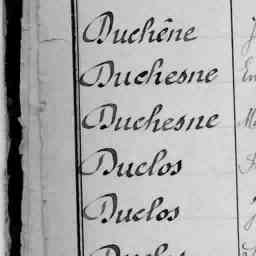 Duchêne
Duchesne
Duchesne
Duclos
Duclos
Duclos